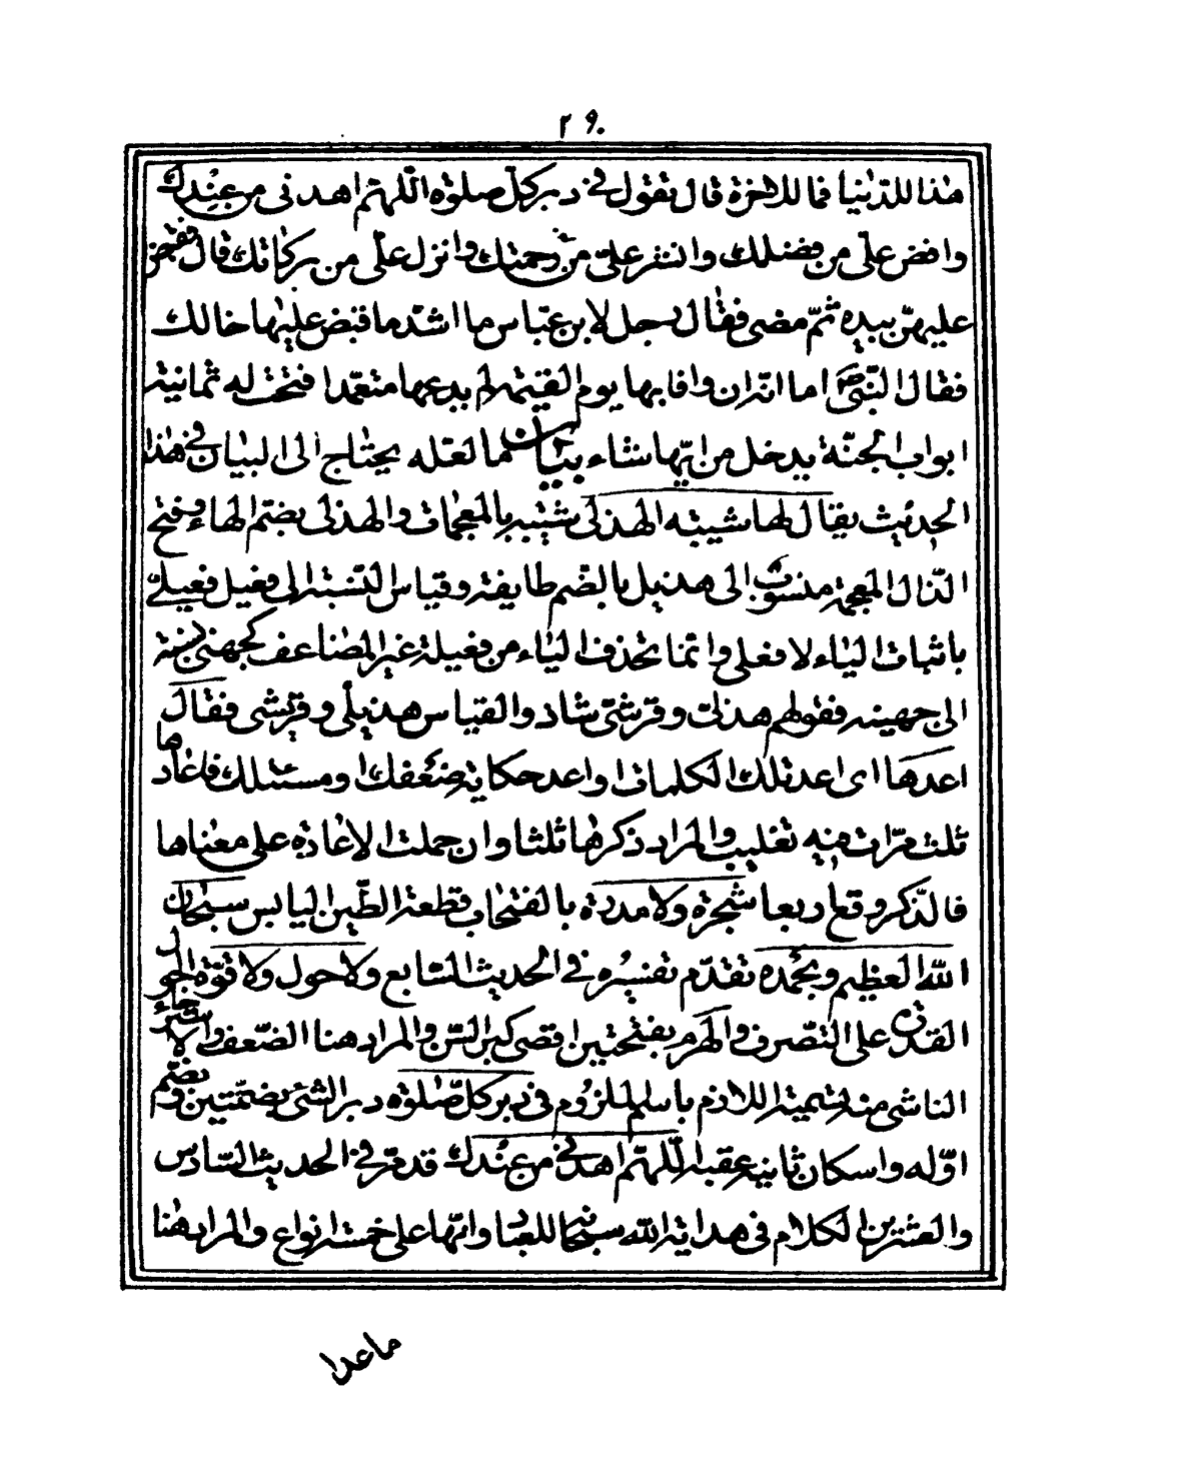 ٢٩٠
هذا للدنيا فما للاخرة قال تقول في دبر كل صلوة اللهم اهدني من عندك
وافض علي من فضلك وانشر علي من رحمتك وانزل علي من بركاتك قال فقبض
عليهن بيده ثم مضى فقال رجل لابن عباس ما اشد ما قبض عليها خالك
فقال النبي ص اما انه ان وافا بها يوم القيمة لم يدعها متعمدا فتحت له ثمانية
ابواب الجنة يدخل من ايها شاء بيان ما لعله يحتاج الى البيان في هذا
الحديث يقال لها شيبه الهذلي شيبه بالمعجمات والهذلي بضم الهاء وفتح
الذال المعجمة منسوب الى هذيل بالضم طايفة وقياس النسبة الى فعيل فعيلي
باثبات الياء لا فعلي وانما تحذف الياء من فعيلة غير المضاعف كجهني نسبة
الى جهينه فقولهم هذلي وقرشي شاذ والقياس هذيلي وقريشي فقال
اعدها اي اعد تلك الكلمات او اعد حكاية ضعفك ومسئلتك فاعادها
ثلث مرات فيه تغليب والمراد ذكرها ثلثا وان حملت الاعادة على معناها
فالذكر وقع اربعا شجرة ولا مدرة بالفتحات قطعة الطين اليابس سبحان
الله العظيم وبحمده تقدم تفسيره في الحديث السابع ولا حول ولا قوة الحول
القدرة على التصرف والهرم بفتحتين اقصى كبر السن والمراد هنا الضعف والاسترخاء
الناشي منه تسمية اللازم باسم الملزوم في دبر كل صلوة دبر الشئ بضمتين وبضم
اوله واسكان ثانيه عقبه اللهم اهدني من عندك قد مر في الحديث السادس
والعشرين الكلام في هداية الله سبحانه للعباد وانها على خمسة انواع والمراد هنا
ماعدا